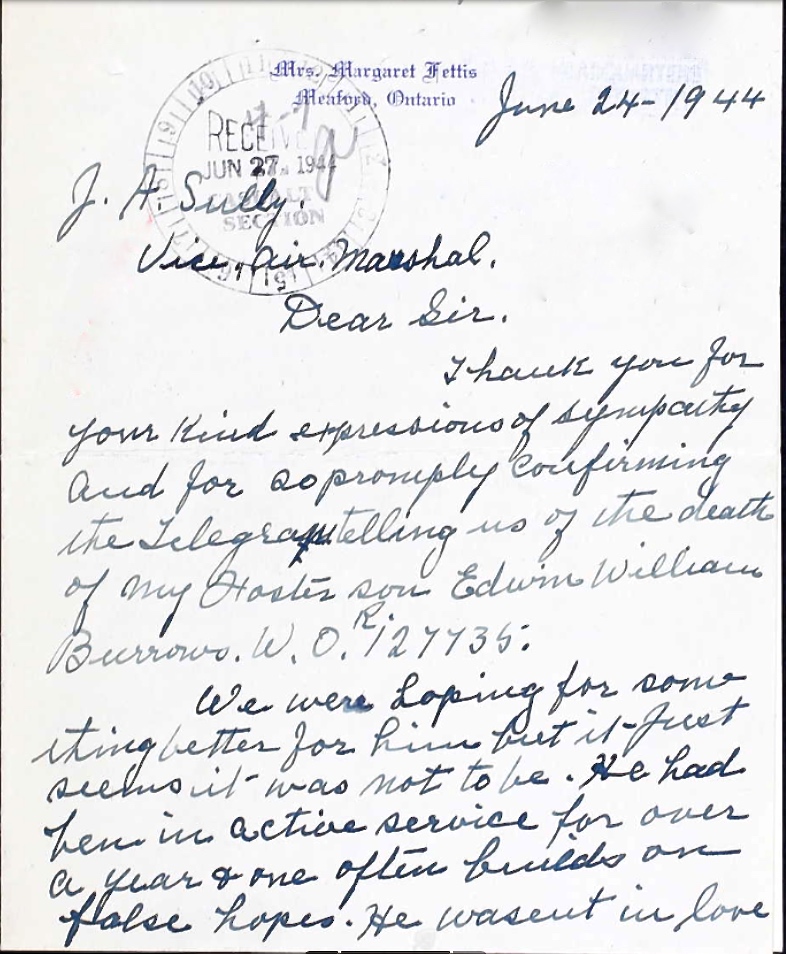 Mrs. Margaret Fettis
Meaford, Ontario
June 24-1944
RECEIVE
JUN 27 1944
SECTION
J. A. Sully.
Vice, Air. Marshal.
Dear Sir.
Thank you for
your Kind expressions of sympathy
and for so promply confirming
the Telegram telling us of the death
of my Foster son Edwin William
Burrows. W. O. R. 127735.
We were hoping for some
thing better for him but it just
seems it was not to be. He had
ben in active service for over
a year & one often builds on
false hopes. He wasent in love